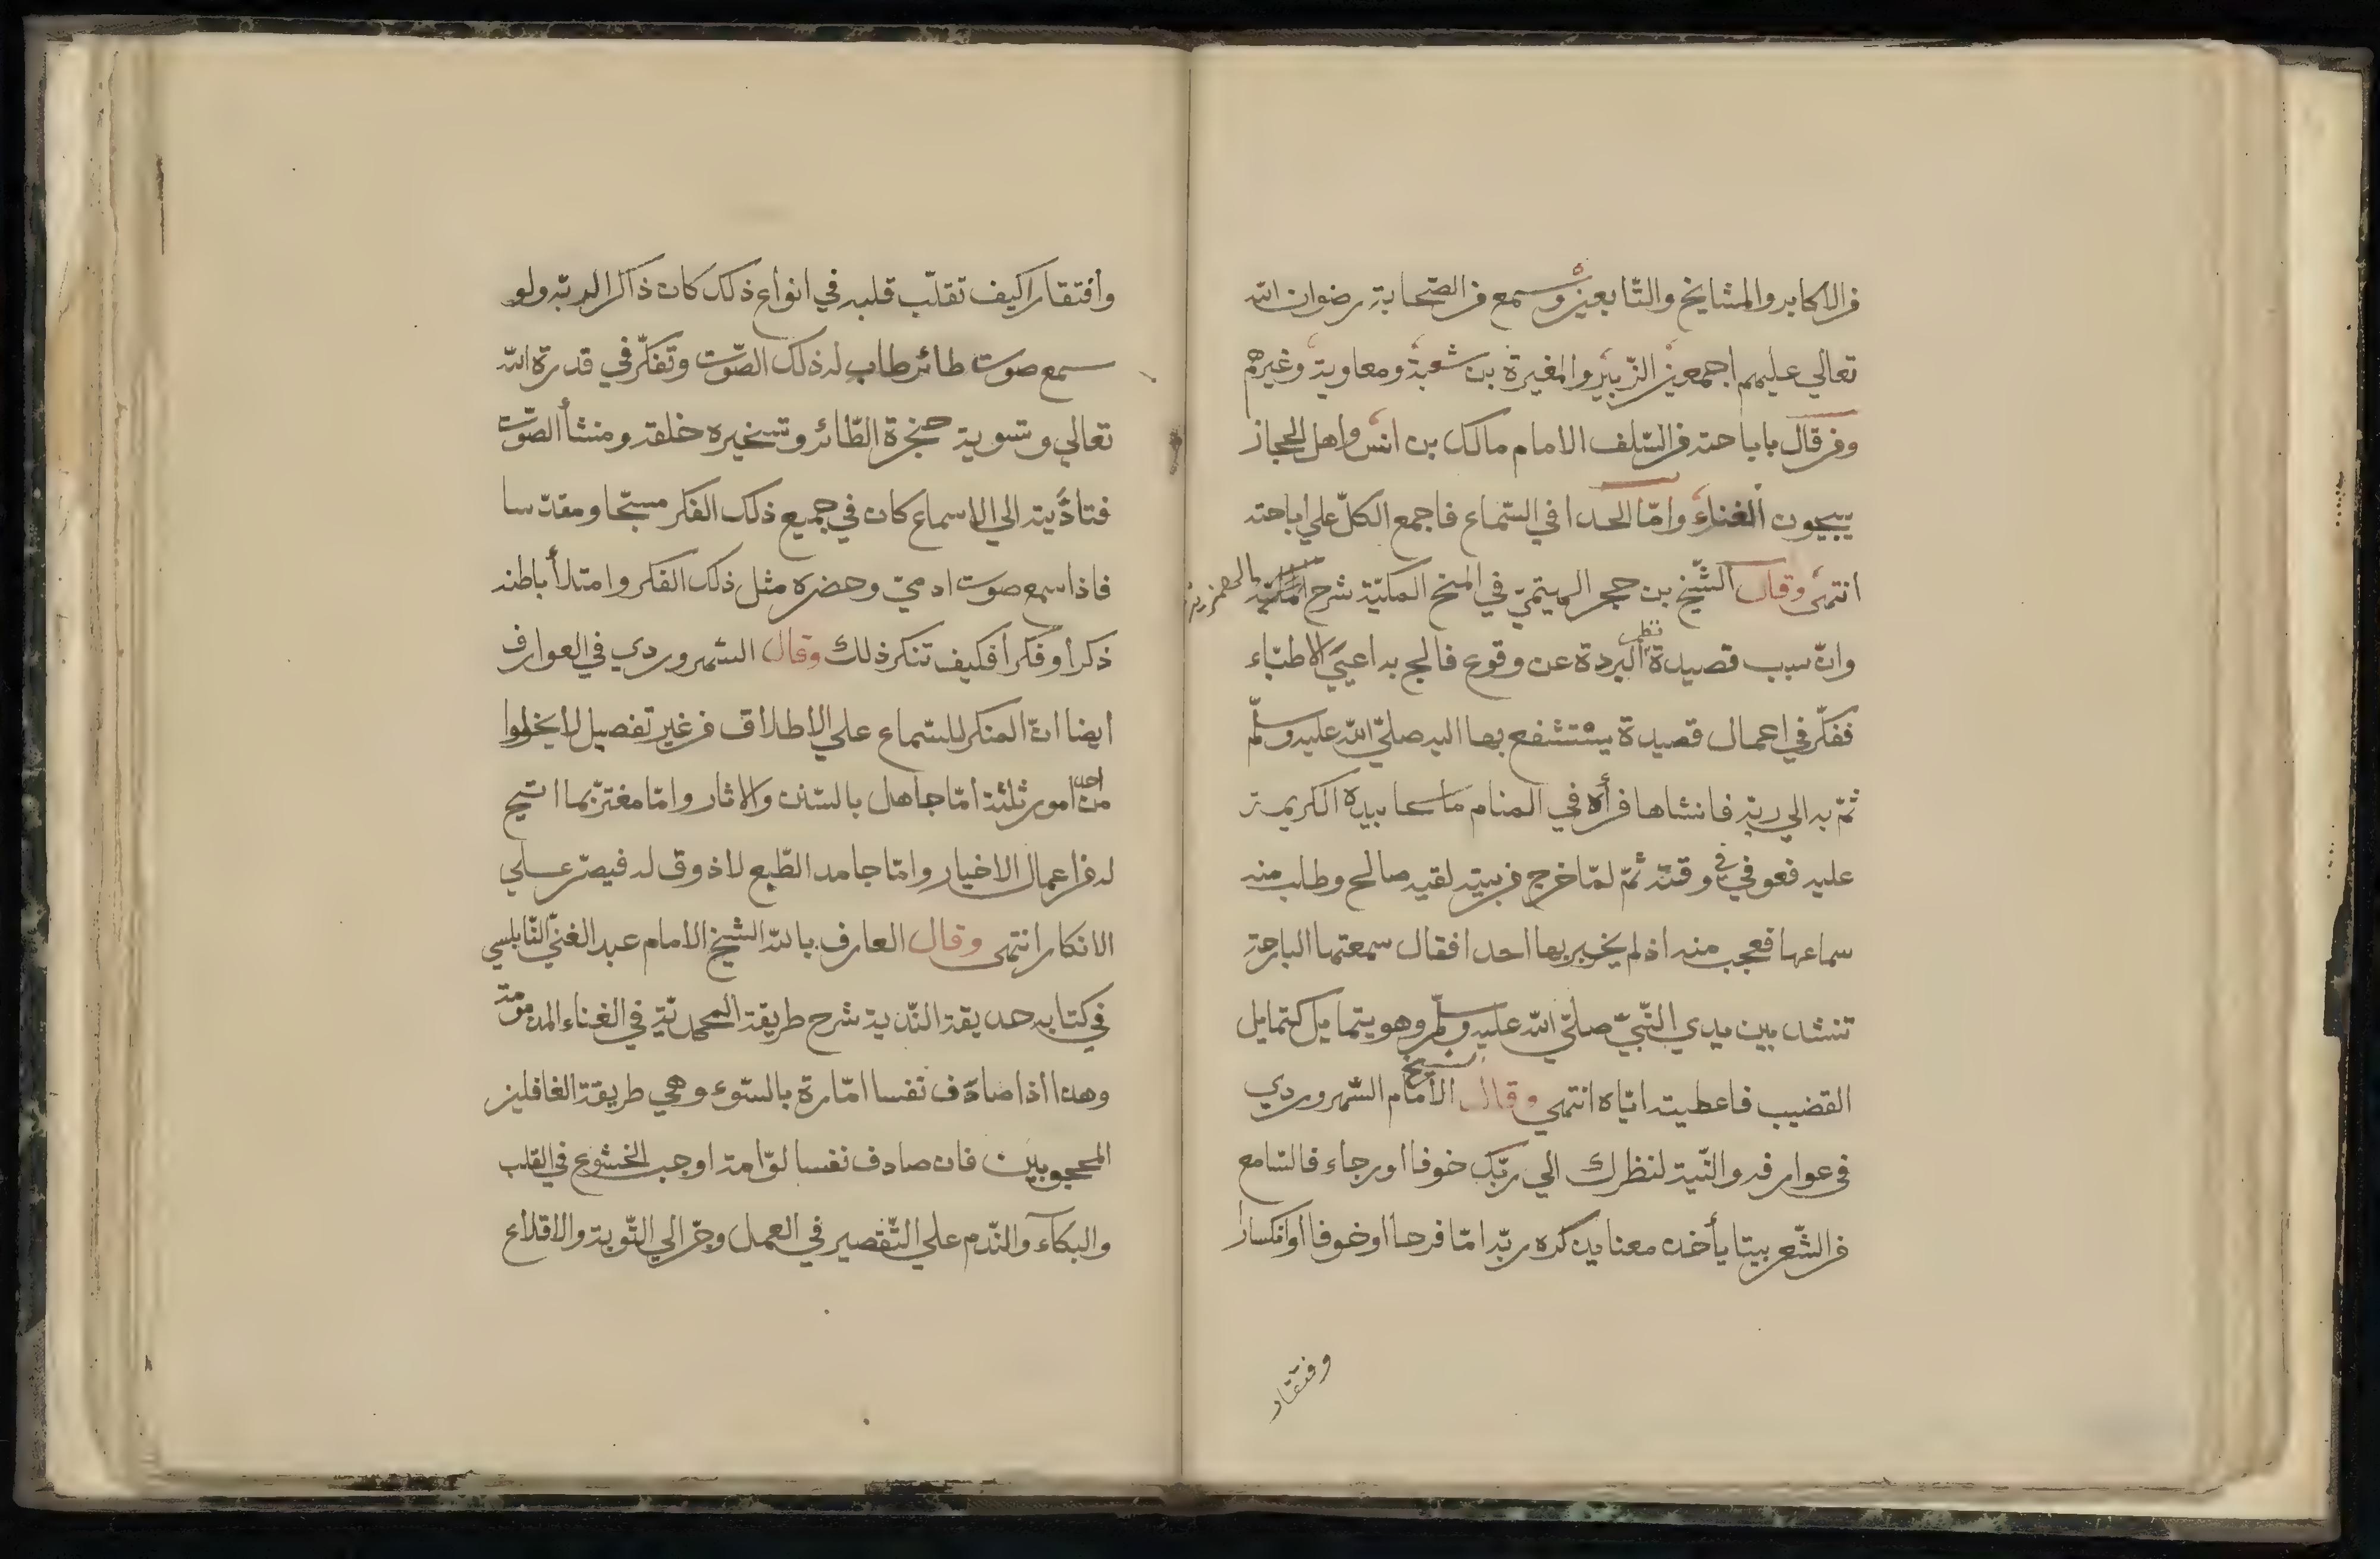 من الاكابر والمشايخ والتّابعين وسمع من الصّحابة رضوان الله
تعالي عليهم اجمعين الزّبير والمغيرة بن شعبة ومعاوية وغيرهم
ومن قال باباحته من السّلف الامام مالك بن انس واهل الحجاز
يبيحون الغناء وامّا الحدا في السّماع فاجمع الكلّ علي اباحته
انتهى وقال الشّيخ بن حجر الهيتميّ في المنح المكيّة شرح الهمزية
وانّ سبب قصيدة نظم البردة عن وقوع فالج به اعيَي الاطبّاء
ففكّر في اعمال قصيدة يستشفع بها اليه صلّي الله عليه وسلّم
ثمّ به الي ربّه فانشاها فرأه في المنام ماسحا بيده الكريمة
عليه فعوفي في وقته ثمّ لمّا خرج من بيته لقيه صالح وطلب منه
سماعها فعجب منه اذ لم يخبر بها احدا فقال سمعتها البارحة
تنشد بين يدي النّبيّ صلّي الله عليه وسلّم وهو يتمايل كتمايل
القضيب فاعطيته ايّاه انتهي وقال الشيخ الامام السّهروردي
في عوارفه والنّية لنظرك الي ربّك خوفا او رجاء فالسّامع
من الشّعر بيتا يأخذ معنا يذكره ربّه امّا فرحا او خوفا او انكسارا
وفتقار
وافتقارا كيف تقلّب قلبه في انواع ذلك كان ذاكرا لربّه ولو
سمع صوت طائر طاب له ذلك الصّوت وتفكّر في قدرة الله
تعالي وتسوية حنجرة الطّائر وتسخيره خلقه ومنشأ الصّوت
فتادّيته الي الاسماع كان في جميع ذلك الفكر مسبّحا ومقدّسا
فاذا سمع صوت ادميّ وحضره مثل ذلك الفكر وامتلأ باطنه
ذكرا وفكرا فكيف تنكر ذلك وقال السّهروردي في العوارف
ايضا انّ المنكر للسّماع علي الاطلاق من غير تفصيل لا يخلوا
من احد امور ثلثة امّا جاهل بالسّنن والاثار وامّا مغترّ بما اتيح
له من اعمال الاخيار وامّا جامد الطّبع لا ذوق له فيصرّ علي
الانكار انتهى وقال العارف بالله الشيخ الامام عبد الغنيّ النّابلسي
في كتابه حديقة النّدية شرح طريقة المحمديّة في الغناء المذمومة
وهذا اذا صادف نفسا امّارة بالسّوء وهي طريقة الغافلين
المحجوبين فان صادف نفسا لوّامة اوجب الخشوع في القلب
والبكآء والنّدم علي التّقصير في العمل وجرّ الي التّوبة والاقلاع